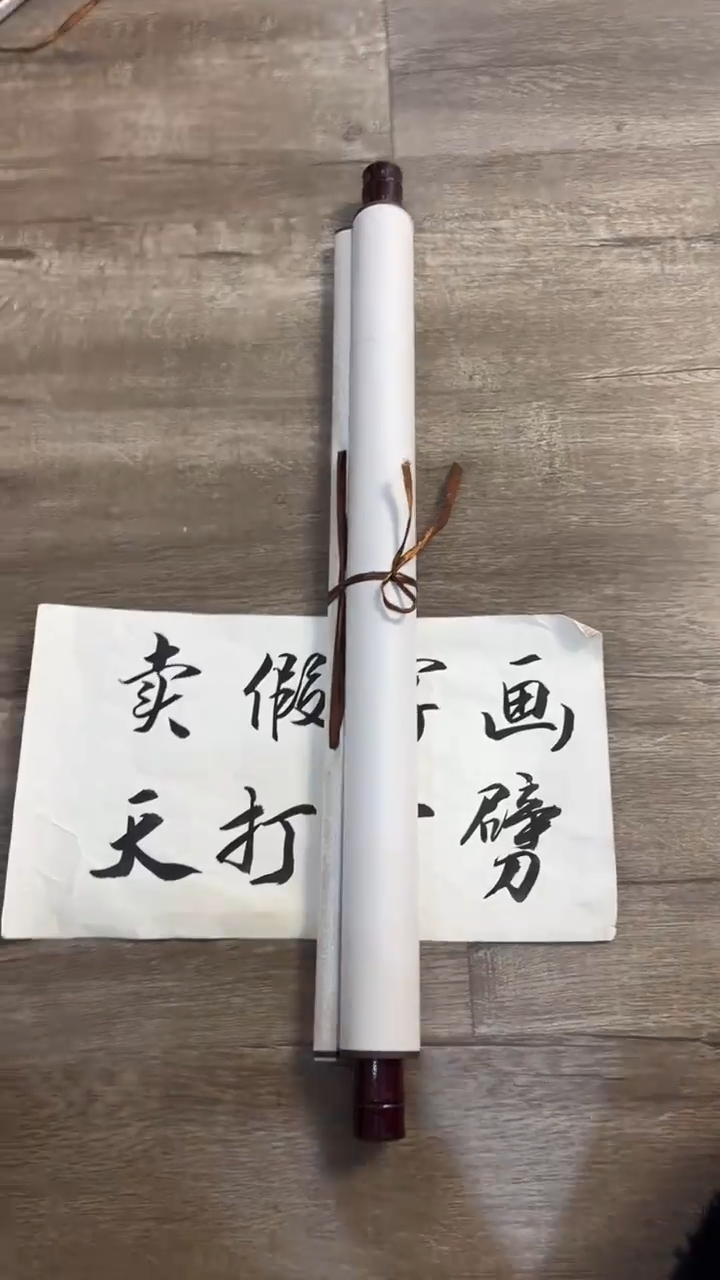 卖假字画
天打 劈